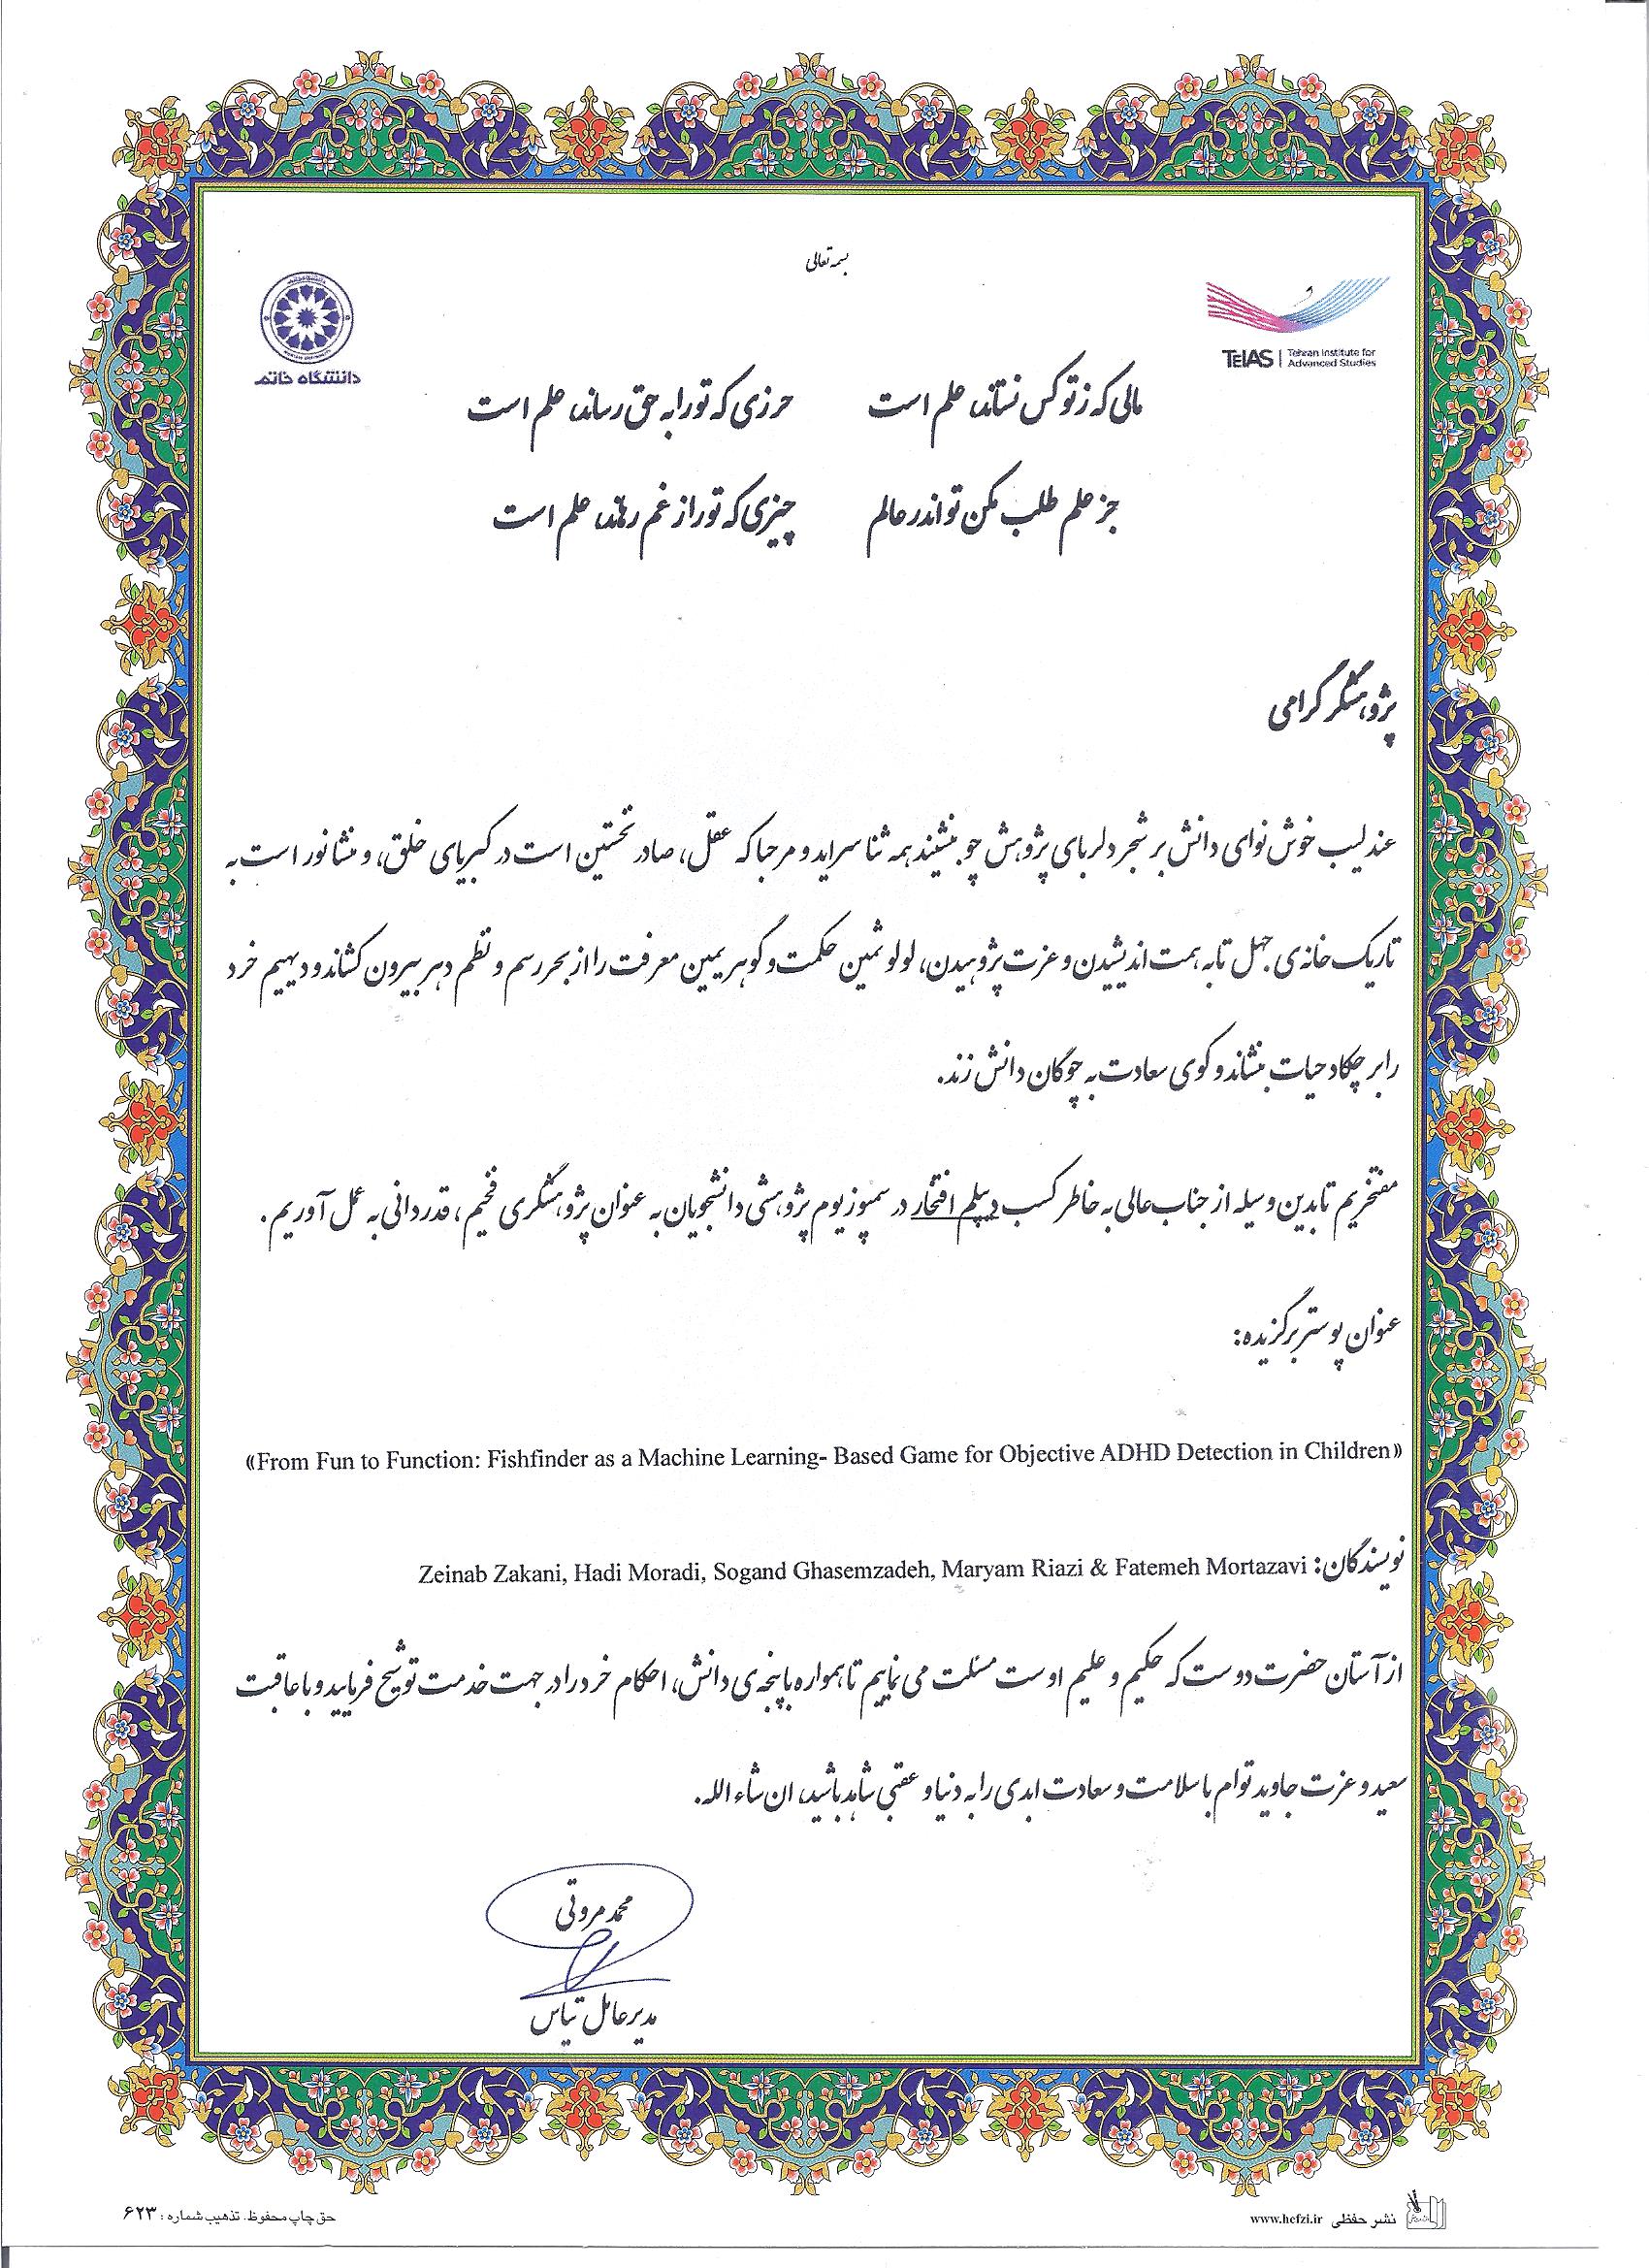 بسمه تعالی
TeIAS | Tehran Institute for Advanced Studies
دانشگاه خاتم
مالی که ز تو کس نستاند، علم است حرزی که تو را به حق رساند، علم است
جز علم طلب مکن تو اندر عالم چیزی که تو را ز غم رهاند، علم است
پژوهشگر گرامی
عندلیب خوش نوای دانش بر شجر دلربای پژوهش چو بنشیند همه ثنا سراید و مرحبا که عقل، صادر نخستین است در کبریای خلق، و منشا نور است به
تاریک خانه‌ی جهل تا به همت اندیشیدن و عزت پژوهیدن، لولو ثمین حکمت و گوهر یمین معرفت را از بحر رسم و نظم دهر بیرون کشاند و دیهیم خرد
را بر چکاد حیات بنشاند و گوی سعادت به چوگان دانش زند.
مفتخریم تا بدین وسیله از جناب عالی به خاطر کسب دیپلم افتخار در سمپوزیوم پژوهشی دانشجویان به عنوان پژوهشگری فخیم، قدردانی به عمل آوریم.
عنوان پوستر برگزیده:
«From Fun to Function: Fishfinder as a Machine Learning- Based Game for Objective ADHD Detection in Children»
نویسندگان: Zeinab Zakani, Hadi Moradi, Sogand Ghasemzadeh, Maryam Riazi & Fatemeh Mortazavi
از آستان حضرت دوست که حکیم و علیم اوست مسئلت می نماییم تا همواره با پنجه‌ی دانش، احکام خرد را در جهت خدمت توشیح فرمایید و با عاقبت
سعید و عزت جاوید توام با سلامت و سعادت ابدی را به دنیا و عقبی شاهد باشید، ان شاء الله.
محمد مروتی
مدیرعامل تیاس
نشر حفظی www.hefzi.ir
حق چاپ محفوظ. تذهیب شماره: ۶۲۳